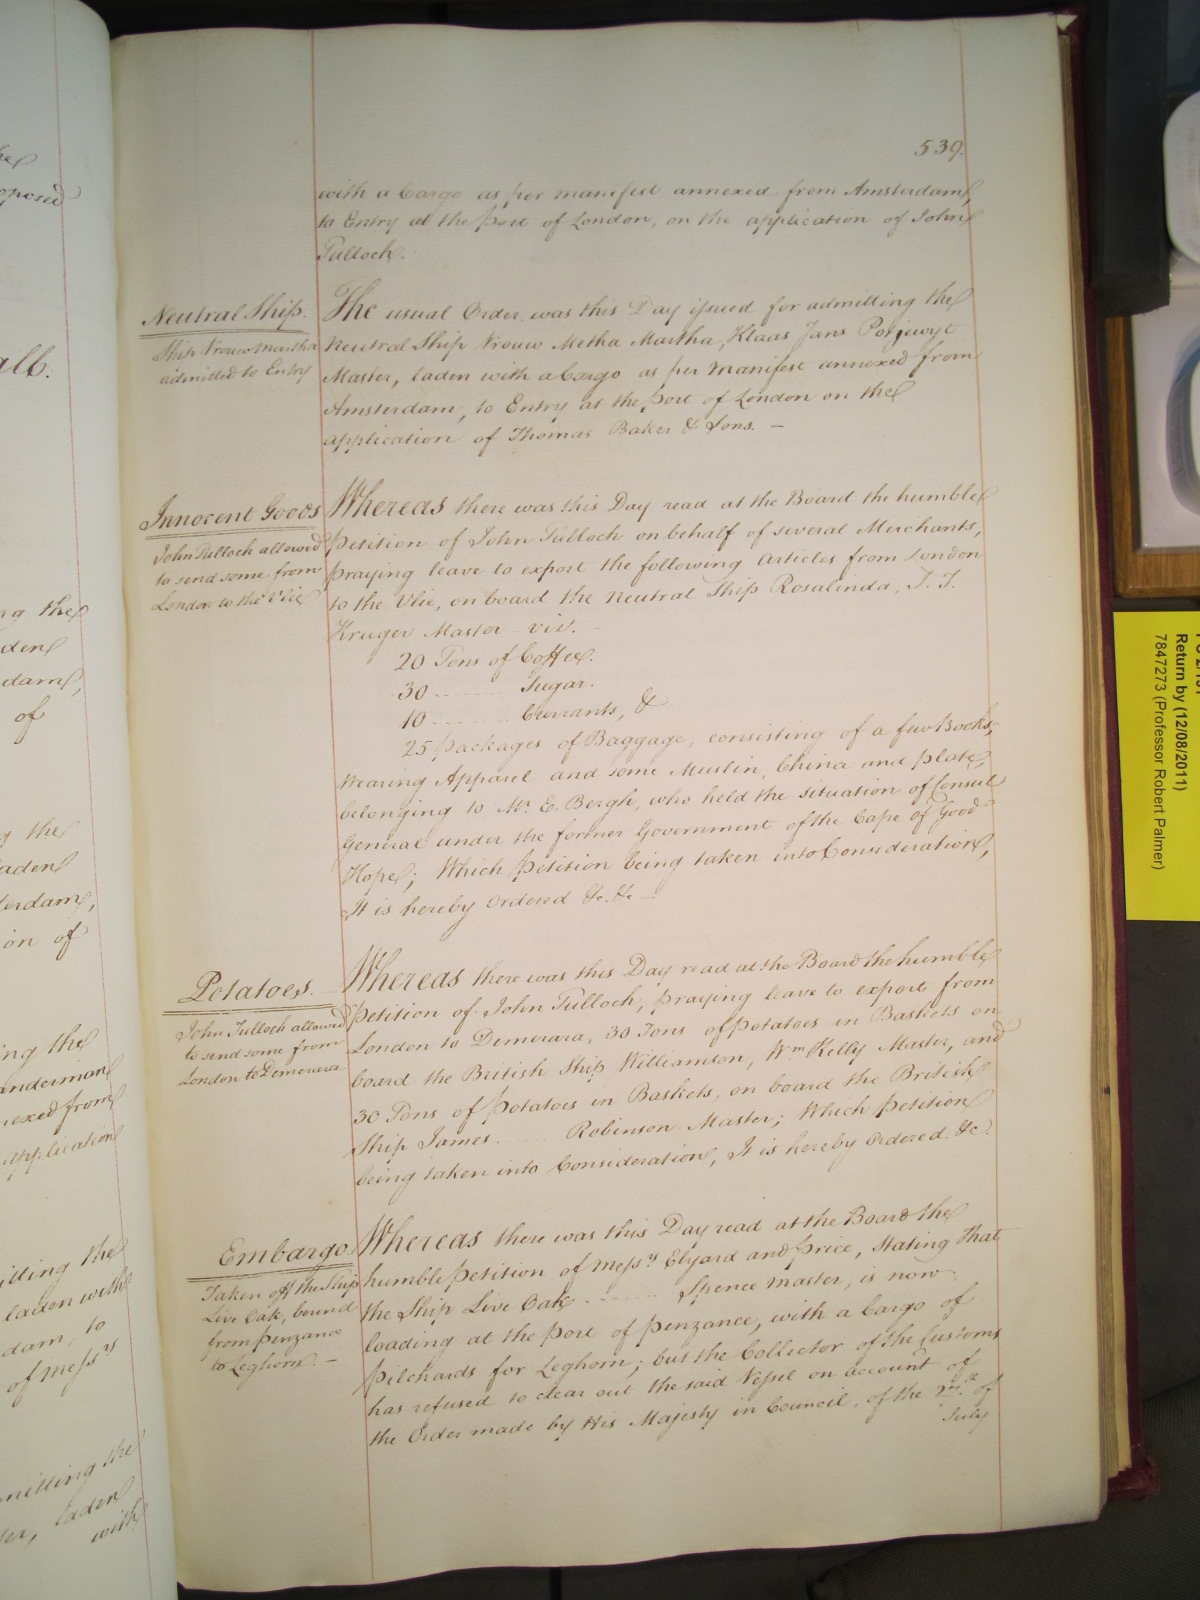 539.
with a Cargo as per manifest annexed from Amsterdam,
to Entry at the Port of London, on the application of John
Tulloch.
Neutral Ship.
Ship Vrouw Martha
admitted to Entry
The usual Order was this Day issued for admitting the
Neutral Ship Vrouw Metha Martha, Klaas Jans
Master, laden with a Cargo as per Manifest annexed from
Amsterdam, to Entry at the Port of London on the
application of Thomas Baker & Sons. —
Innocent Goods
John Tulloch allowed
to send some from
London to the Vlie
Whereas there was this Day read at the Board the humble
Petition of John Tulloch on behalf of several Merchants,
praying leave to export the following Articles from London
to the Vlie, on board the Neutral Ship Rosalinda, T. T.
Kruger Master – viz. –
20 Tons of Coffee.
30 ........ Sugar.
10 ........ Currants, &
25 Packages of Baggage, consisting of a few Books,
Wearing Apparel and some Muslin, China and Plate,
belonging to Mr. E. Bergh, who held the situation of Consul
General under the former Government of the Cape of Good
Hope; Which Petition being taken into Consideration,
It is hereby Ordered &c. &c —
Potatoes.
John Tulloch allowed
to send some from
London to Demerara
Whereas there was this Day read at the Board the humble
Petition of John Tulloch, praying leave to export from
London to Demerara, 30 Tons of Potatoes in Baskets on
board the British Ship Williamson, Wm Kelly Master, and
30 Tons of Potatoes in Baskets, on board the British
Ship James ........ Robinson Master; Which Petition
being taken into Consideration, It is hereby Ordered. &c.
Embargo
Taken off the Ship
Live Oak, bound
from Penzance
to Leghorn. –
Whereas there was this Day read at the Board the
humble Petition of Messrs Elyard and Price, Stating That
the Ship Live Oak ........ Spence Master, is now
loading at the Port of Penzance, with a Cargo of
Pilchards for Leghorn; but the Collector of the Customs
has refused to clear out the said Vessel on account of
the Order made by His Majesty in Council, of the 27th of
July
Return by (12/08/2011)
7847273 (Professor Robert Palmer)